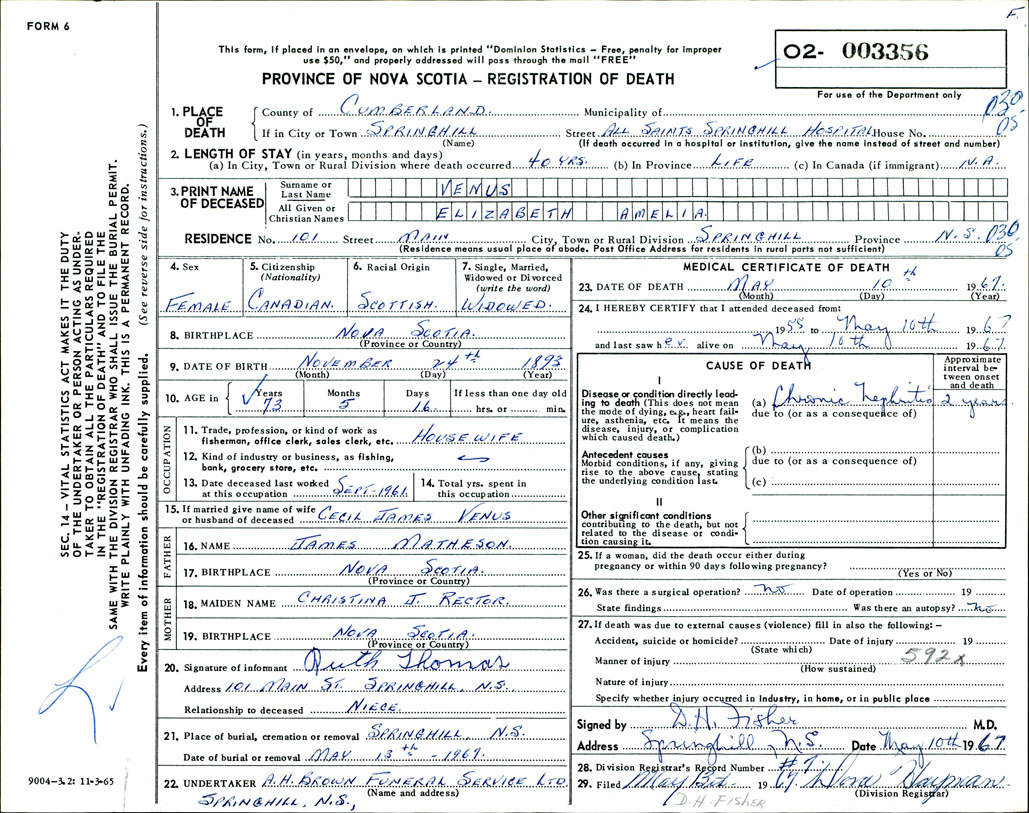 F.
FORM 6
This form, if placed in an envelope, on which is printed "Dominion Statistics — Free, penalty for improper
use $50," and properly addressed will pass through the mail "FREE"
02- 003356
For use of the Department only
PROVINCE OF NOVA SCOTIA — REGISTRATION OF DEATH
SEC. 14 — VITAL STATISTICS ACT MAKES IT THE DUTY
OF THE UNDERTAKER OR PERSON ACTING AS UNDER-
TAKER TO OBTAIN ALL THE PARTICULARS REQUIRED
IN THE "REGISTRATION OF DEATH" AND TO FILE THE
SAME WITH THE DIVISION REGISTRAR WHO SHALL ISSUE THE BURIAL PERMIT.
WRITE PLAINLY WITH UNFADING INK. THIS IS A PERMANENT RECORD.
Every item of information should be carefully supplied. (See reverse side for instructions.)
1. PLACE OF DEATH
County of CUMBERLAND. Municipality of 030
If in City or Town SPRINGHILL Street ALL SAINTS SPRINGHILL HOSPITAL House No. 05
(Name) (If death occurred in a hospital or institution, give the name instead of street and number)
2. LENGTH OF STAY (in years, months and days)
(a) In City, Town or Rural Division where death occurred 40 YRS. (b) In Province LIFE (c) In Canada (if immigrant) N.A.
3. PRINT NAME OF DECEASED
Surname or Last Name VENUS
All Given or Christian Names ELIZABETH AMELIA.
RESIDENCE No. 101 Street MAIN City, Town or Rural Division SPRINGHILL Province N.S. 030
(Residence means usual place of abode. Post Office Address for residents in rural parts not sufficient) 05
4. Sex FEMALE
5. Citizenship (Nationality) CANADIAN.
6. Racial Origin SCOTTISH.
7. Single, Married, Widowed or Divorced (write the word) WIDOWED.
8. BIRTHPLACE NOVA SCOTIA.
(Province or Country)
9. DATE OF BIRTH NOVEMBER 24th 1893
(Month) (Day) (Year)
10. AGE in Years 73 Months 5 Days 16. If less than one day old hrs. or min.
OCCUPATION
11. Trade, profession, or kind of work as
fisherman, office clerk, sales clerk, etc. HOUSEWIFE
12. Kind of industry or business, as fishing,
bank, grocery store, etc.
13. Date deceased last worked at this occupation SEPT-1961.
14. Total yrs. spent in this occupation
15. If married give name of wife
or husband of deceased CECIL JAMES VENUS
FATHER
16. NAME JAMES MATHESON.
17. BIRTHPLACE NOVA SCOTIA.
(Province or Country)
MOTHER
18. MAIDEN NAME CHRISTINA J. RECTOR.
19. BIRTHPLACE NOVA SCOTIA.
(Province or Country)
20. Signature of informant Ruth Thomas
Address 101 MAIN ST. SPRINGHILL, N.S.,
Relationship to deceased NIECE.
21. Place of burial, cremation or removal SPRINGHILL, N.S.
Date of burial or removal MAY 13th - 1967.
22. UNDERTAKER A.H. BROWN FUNERAL SERVICE LTD.
(Name and address)
SPRINGHILL, N.S.,
9004-3.2: 11-3-65
MEDICAL CERTIFICATE OF DEATH
23. DATE OF DEATH MAY 10th 1967.
(Month) (Day) (Year)
24. I HEREBY CERTIFY that I attended deceased from:
1955 to May 10th 1967
and last saw her alive on May 10th 1967.
CAUSE OF DEATH
Approximate interval between onset and death
I
Disease or condition directly lead-
ing to death (This does not mean
the mode of dying, e.g., heart fail-
ure, asthenia, etc. It means the
disease, injury, or complication
which caused death.)
(a) Chronic Nephritis 2 years
due to (or as a consequence of)
Antecedent causes
Morbid conditions, if any, giving
rise to the above cause, stating
the underlying condition last.
(b)
due to (or as a consequence of)
(c)
II
Other significant conditions
contributing to the death, but not
related to the disease or condi-
tion causing it.
25. If a woman, did the death occur either during
pregnancy or within 90 days following pregnancy?
(Yes or No)
26. Was there a surgical operation? no Date of operation 19
State findings Was there an autopsy? no
27. If death was due to external causes (violence) fill in also the following: —
Accident, suicide or homicide? Date of injury 19
(State which)
Manner of injury 592x
(How sustained)
Nature of injury
Specify whether injury occurred in industry, in home, or in public place
Signed by D.H. Fisher M.D.
Address Springhill, N.S. Date May 10th 1967.
28. Division Registrar's Record Number #71
29. Filed May 1967
(Division Registrar)
D.H. FISHER